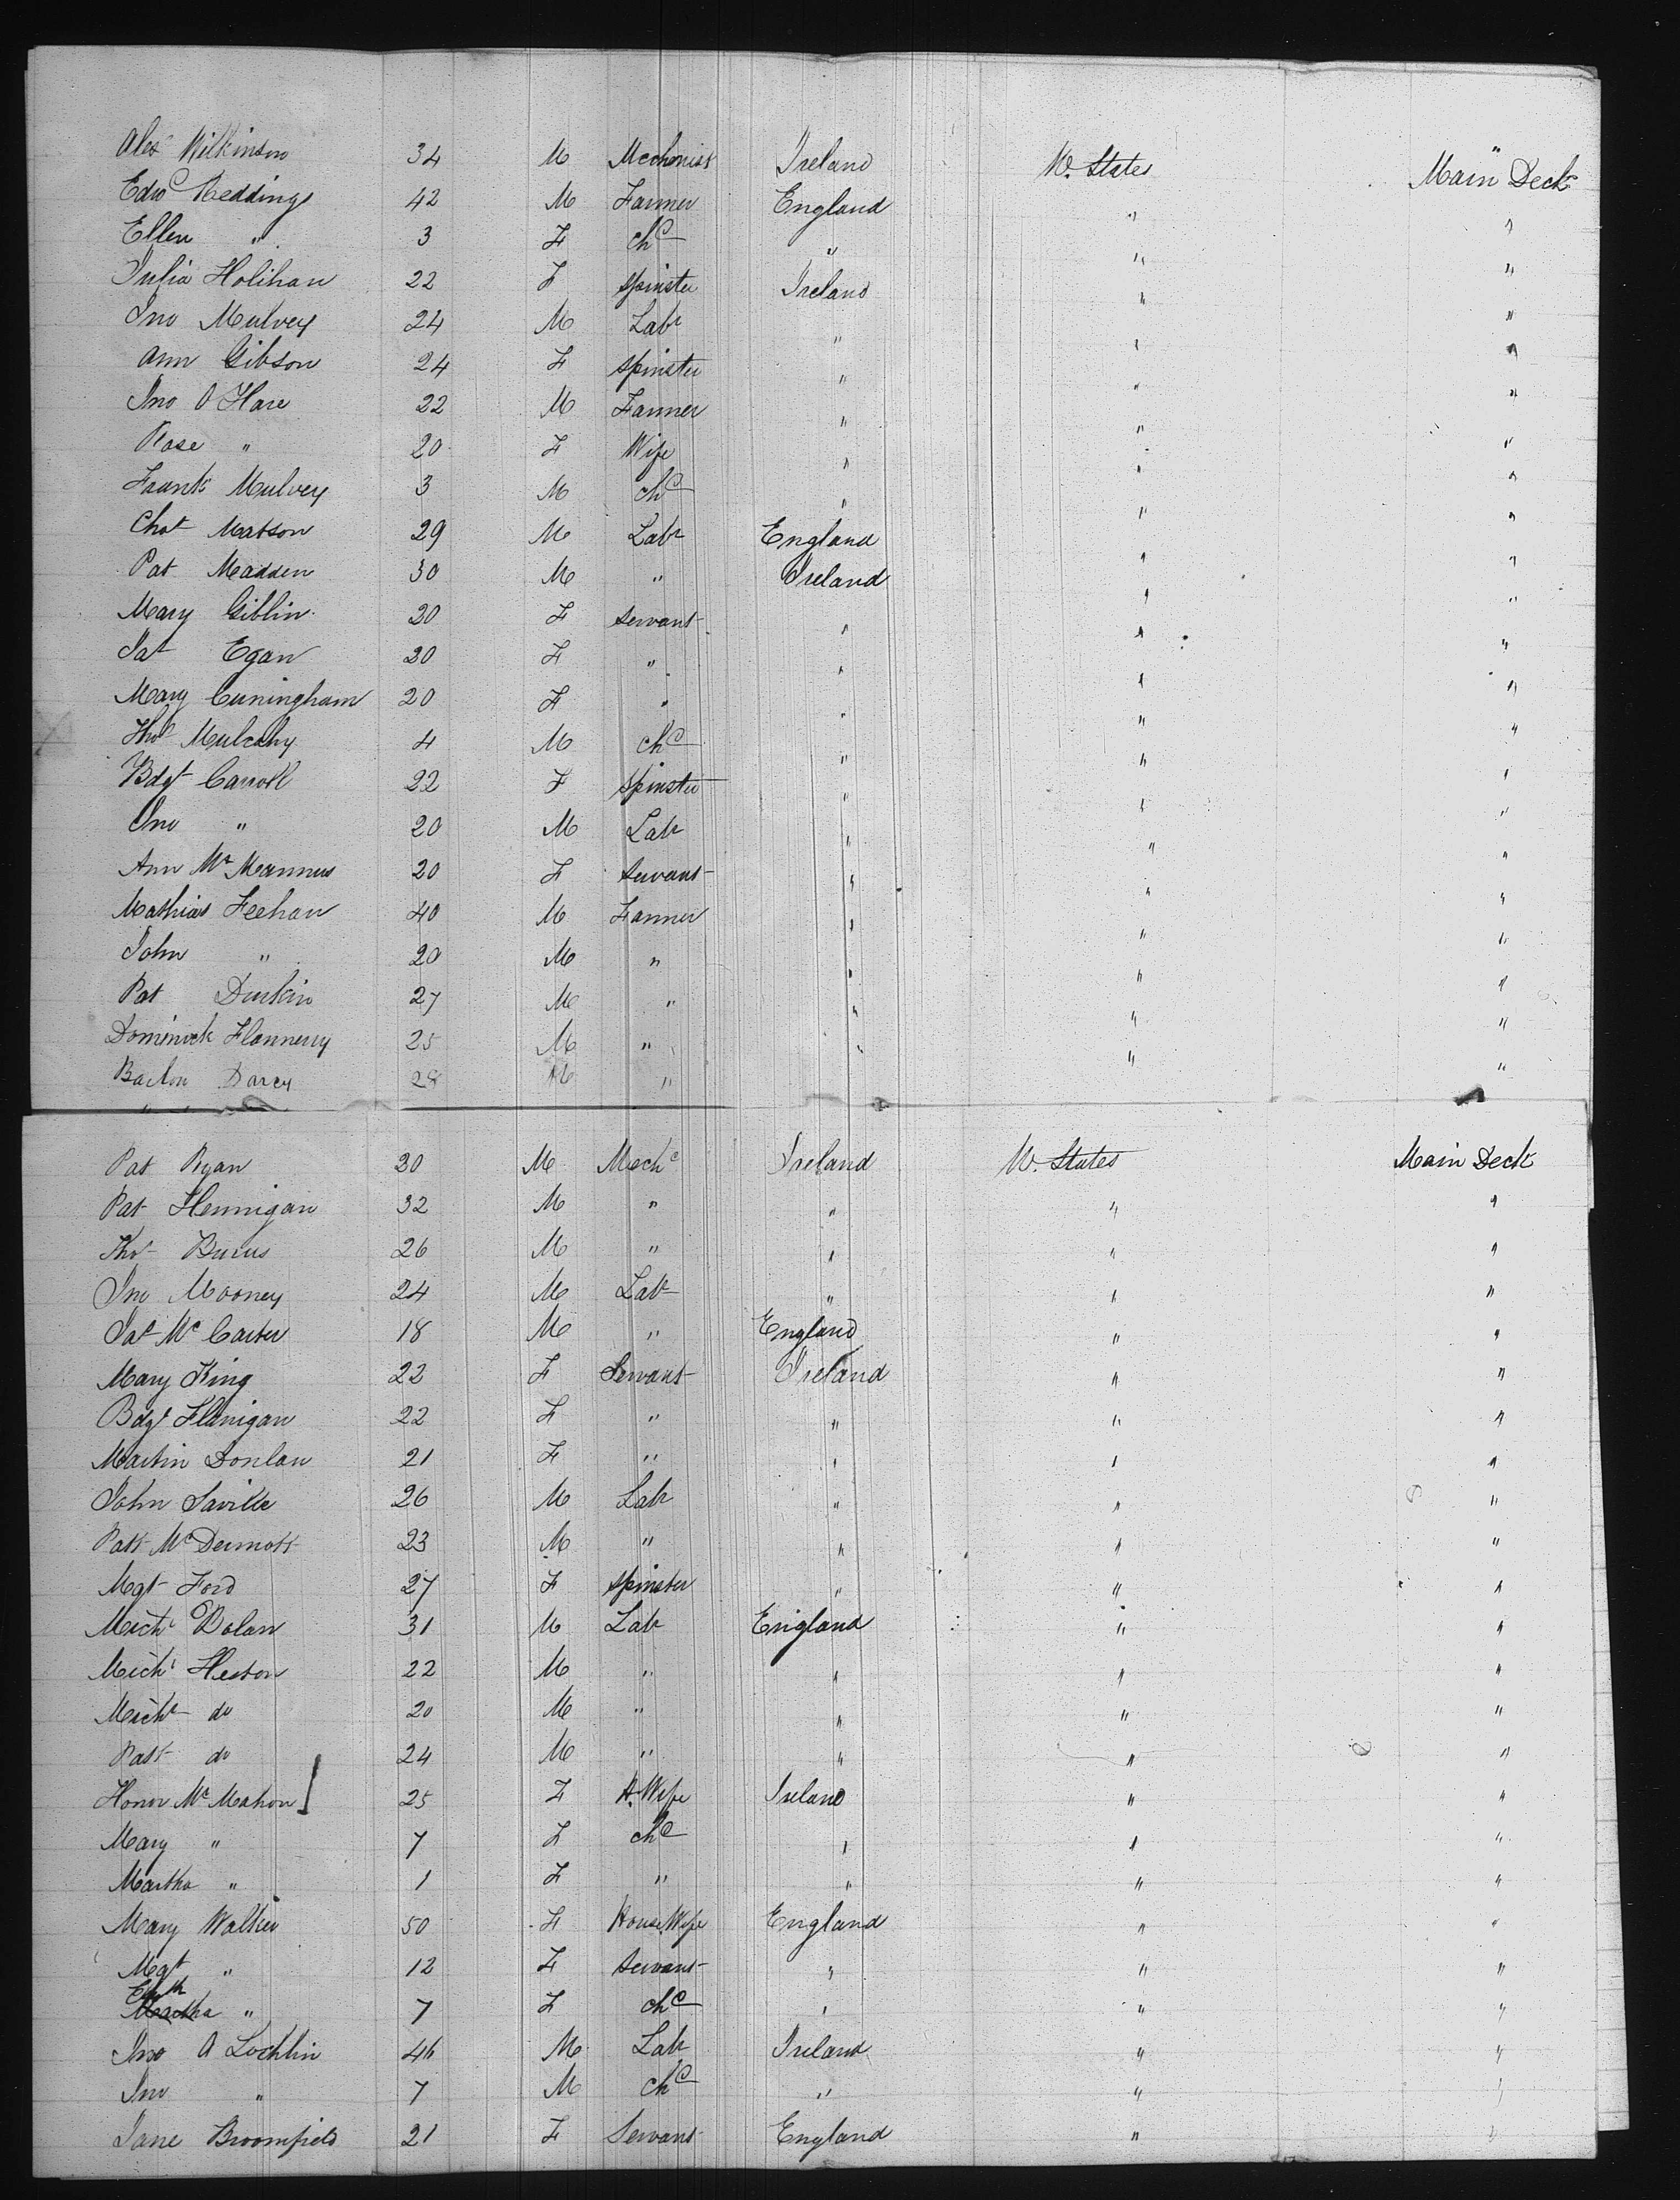 Alex Wilkinson 34 M Mechanist Ireland U. States Main Deck
Edwd Reddings 42 M Farmer England " "
Ellen " 3 F chd " " "
Julia Holihan 22 F spinster Ireland " "
Jno Mulvey 24 M Labr " " "
Ann Gibson 24 F spinster " " "
Jno O Hare 22 M Farmer " " "
Rose " 20 F Wife " " "
Frank Mulvey 3 M chd " " "
Chat Matson 29 M Labr England " "
Pat Madden 30 M " Ireland " "
Mary Giblin 20 F servant " " "
Pat Egan 20 F " " " "
Mary Cuningham 20 F " " " "
Thos Mulcahy 4 M chd " " "
Bdgt Carroll 22 F spinster " " "
Jno " 20 M Labr " " "
Ann Mc Mannus 20 F servant " " "
Mathias Feehan 40 M Farmer " " "
John " 20 M " " " "
Pat Durkin 27 M " " " "
Dominick Flannery 25 M " " " "
Darcy 28 M " "
Pat Ryan 30 M Mechc Ireland U. States Main Deck
Pat Hennigan 32 M " " " "
Thos Burns 26 M " " " "
Jno Mooney 24 M Labr " " "
Jas Mc Carter 18 M " England " "
Mary King 22 F Servant Ireland " "
Bdgt Flanigan 22 F " " " "
Martin Donlan 21 F " " " "
John Saville 26 M Labr " " "
Patk McDermott 23 M " " " "
Mgt Ford 27 F spinster " " "
Michl Dolan 31 M Labr England " "
Michl Heston 22 M " " " "
Michl do 20 M " " " "
Patk do 24 M " " " "
Honor Mc Mahon 25 F H. Wife Ireland " "
Mary " 7 F chd " " "
Martha " 1 F " " " "
Mary Walker 50 F House Wife England " "
Mgt " 12 F servant " " "
Elizth Martha " 7 F chd " " "
Jno O Lochlin 46 M Labr Ireland " "
Jno " 7 M chd " " "
Jane Broomfield 21 F Servant England " "